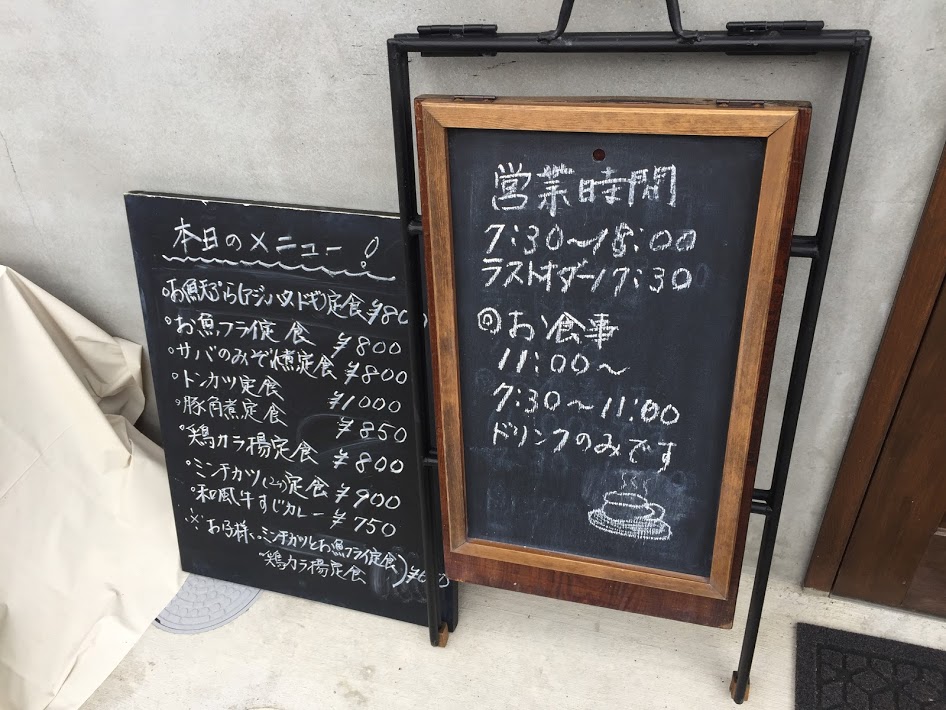 本日のメニュー
お魚天ぷら(アジ ハタ ドギ)定食 ¥80
お魚フライ定食 ¥800
サバのみそ煮定食 ¥800
トンカツ定食 ¥1000
豚角煮定食 ¥850
鶏カラ揚定食 ¥800
ミンチカツ(2ケ)定食 ¥900
和風牛すじカレー ¥750
※お子様、ミンチカツとお魚フライ定食
鶏カラ揚定食
営業時間
7:30〜18:00
ラストオーダー17:30
◎お食事
11:00〜
7:30〜11:00
ドリンクのみです